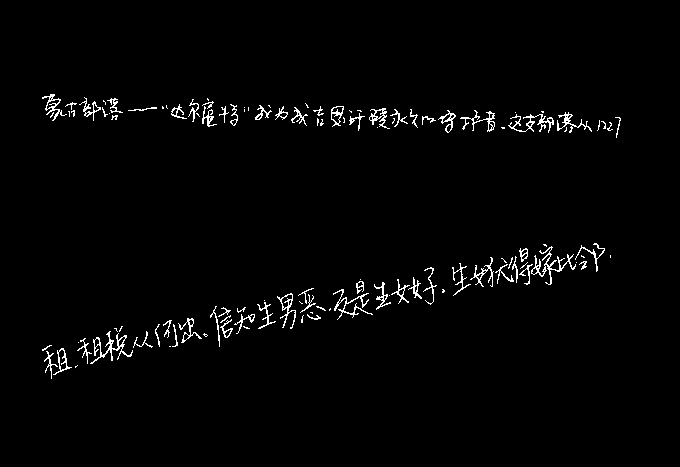 蒙古部落——"达尔扈特"成为成吉思汗陵永久的守护者、这支部落从1227
租、租税从何出。信知生男恶、反是生女好、生女犹得嫁比邻、